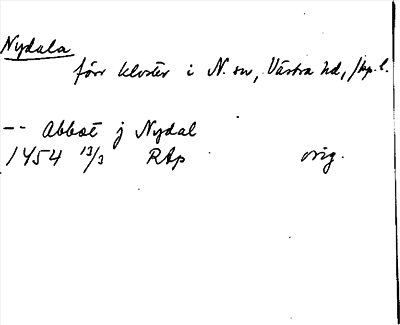 Nydala
förr kloster i N. sn, Västra hd, Jkp. l.
-- Abbot j Nydal
1454 13/3 RAp orig.